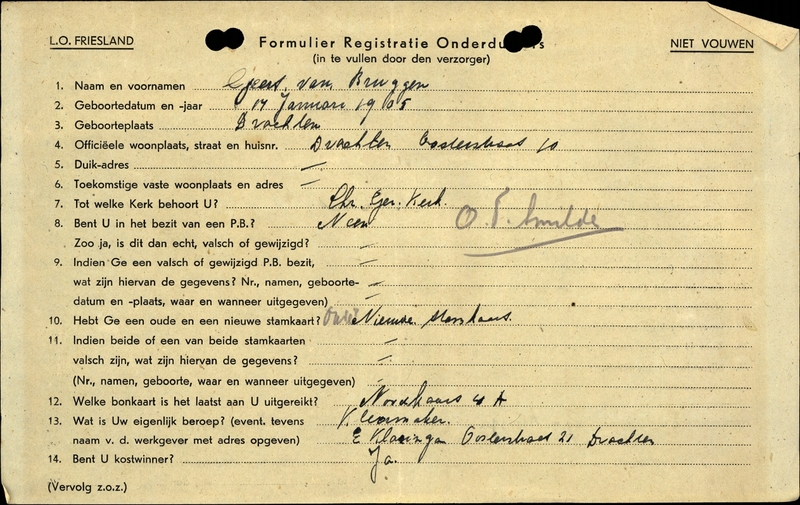 L.O. FRIESLAND
Formulier Registratie Onderdu s
NIET VOUWEN
(in te vullen door den verzorger)
1. Naam en voornamen Geert van Bruggen
2. Geboortedatum en -jaar 17 Januari 1905
3. Geboorteplaats Drachten
4. Officiëele woonplaats, straat en huisnr. Drachten Oosterstraat 10
5. Duik-adres —
6. Toekomstige vaste woonplaats en adres —
7. Tot welke Kerk behoort U? Chr. Ger. Kerk
8. Bent U in het bezit van een P.B.? Neen
O.T. Smilde
Zoo ja, is dit dan echt, valsch of gewijzigd? —
9. Indien Ge een valsch of gewijzigd P.B. bezit, —
wat zijn hiervan de gegevens? Nr., namen, geboorte- —
datum en -plaats, waar en wanneer uitgegeven) —
10. Hebt Ge een oude en een nieuwe stamkaart? Nieuwe stamkaart.
11. Indien beide of een van beide stamkaarten —
valsch zijn, wat zijn hiervan de gegevens? —
(Nr., namen, geboorte, waar en wanneer uitgegeven) —
12. Welke bonkaart is het laatst aan U uitgereikt? Noodkaart 4 A
13. Wat is Uw eigenlijk beroep? (event. tevens Kleermaker.
naam v. d. werkgever met adres opgeven) E Oosterstraat 21 Drachten
14. Bent U kostwinner? Ja.
(Vervolg z.o.z.)